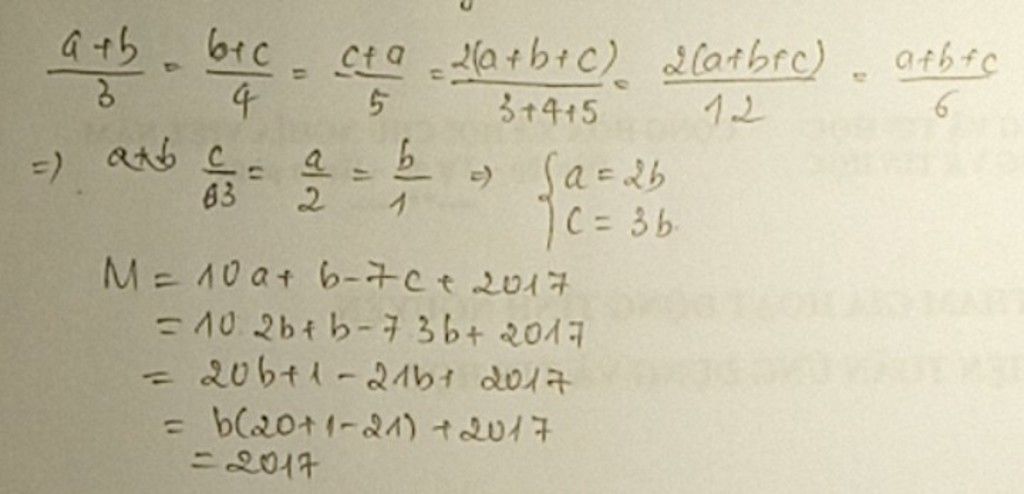 (a+b)/3 = (b+c)/4 = (c+a)/5 = 2(a+b+c)/(3+4+5) = 2(a+b+c)/12 = (a+b+c)/6
=> c/3 = a/2 = b/1 => { a = 2b
c = 3b
M = 10a + b - 7c + 2017
= 10. 2b + b - 7 3b + 2017
= 20b + 1 - 21b + 2017
= b(20+1-21) + 2017
= 2017